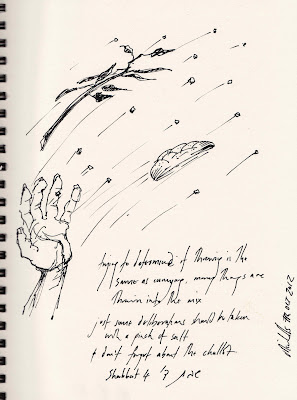 trying to determine if throwing is the
same as carrying, many things are
thrown into the mix
just some deliberations should be taken
with a pinch of salt
& don't forget about the challot
Shabbat 4 ד' שבת
2012